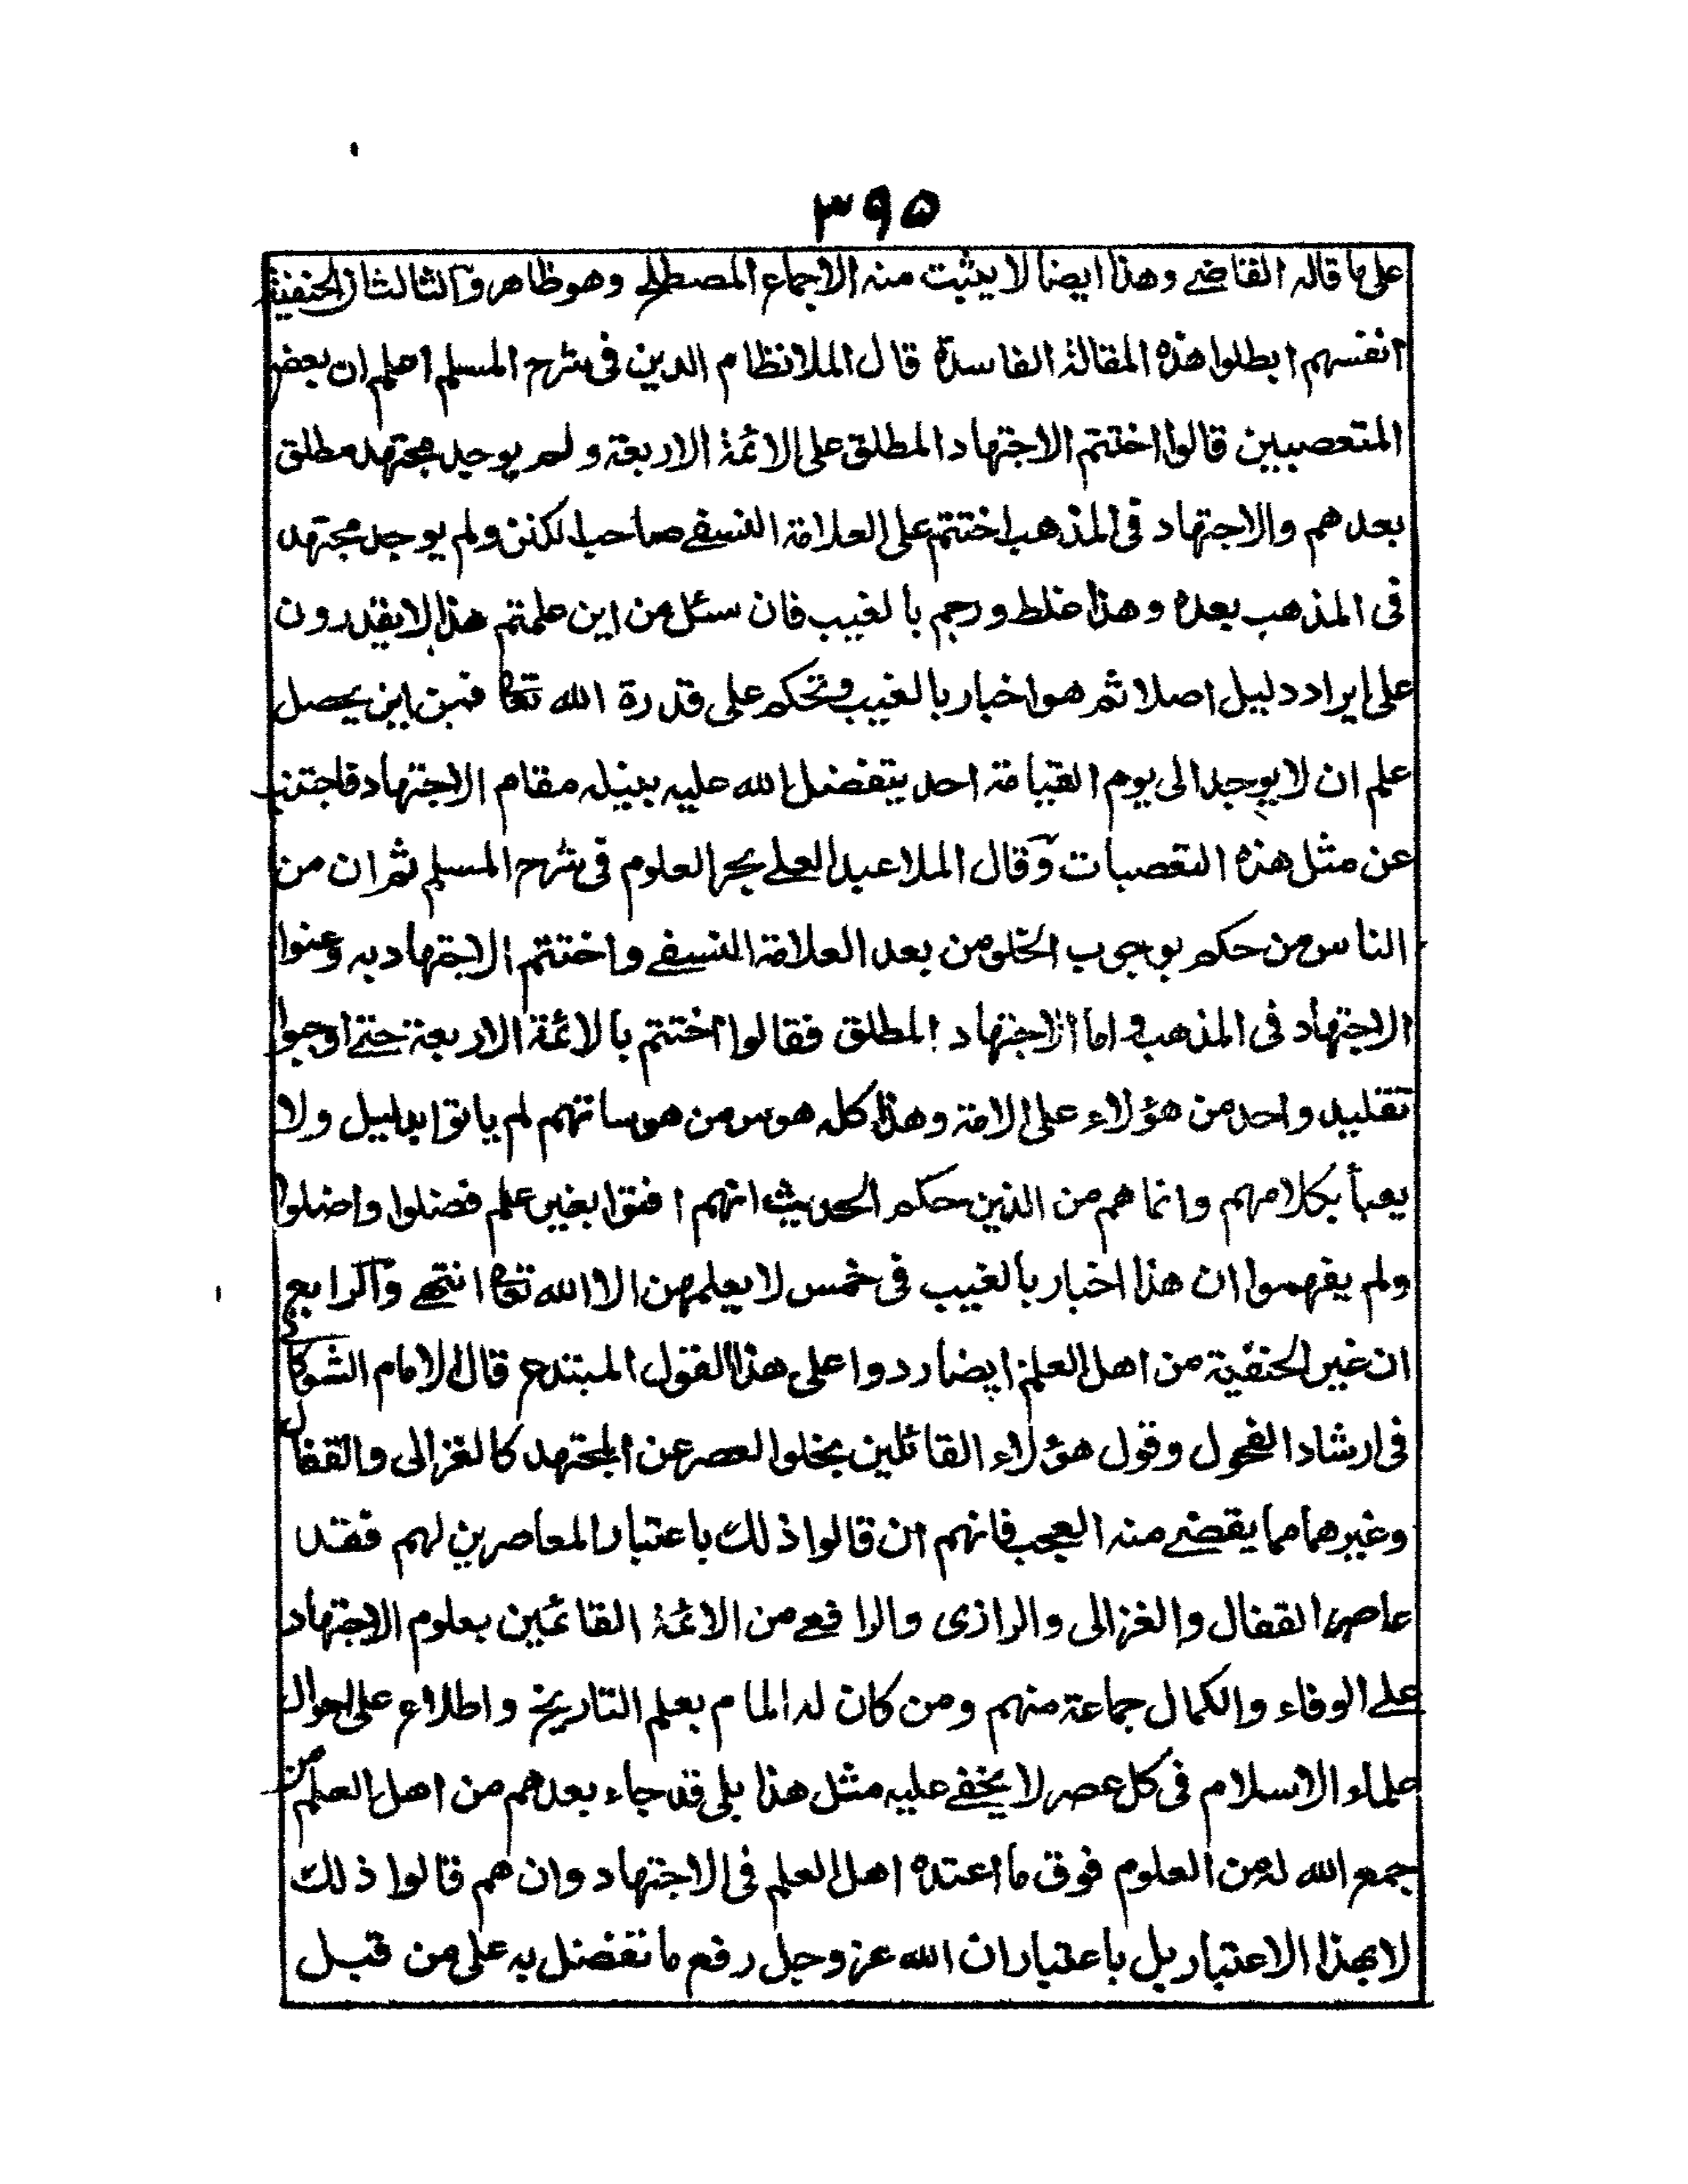 ۳۹۵
على ما قاله القاضے وهذا ايضا لا يثبت منه الاجماع المصطلح وهو ظاهر وآلثالث ان الحنفية
انفسهم ابطلوا هذه المقالة الفاسدة قال الملا نظام الدين فى شرح المسلم اعلم ان بعض
المتعصبين قالوا اختتم الاجتهاد المطلق على الائمة الاربعة ولم يوجد مجتهد مطلق
بعدهم والاجتهاد فى المذهب اختتم على العلامة النسفے صاحب الكنز ولم يوجد مجتهد
فى المذهب بعده وهذا غلط ورجم بالغيب فان سئل من اين علمتم هذا لا يقدرون
على ايراد دليل اصلا ثم هو اخبار بالغيب وتحكم على قدرة الله تعا فمن اين يحصل
علم ان لا يوجد الى يوم القيامة احد يتفضل الله عليه بنيله مقام الاجتهاد فاجتنب
عن مثل هذه التعصبات وقال الملا عبد العلے بحر العلوم فى شرح المسلم ثم ان من
الناس من حكم بوجوب الخلو من بعد العلامة النسفے واختتم الاجتهاد به وعنوا
الاجتهاد فى المذهب واما الاجتهاد المطلق فقالوا اختتم بالائمة الاربعة حتے اوجبوا
تقليد واحد من هؤلاء على الامة وهذا كله هوس من هوساتهم لم ياتوا بدليل ولا
يعبأ بكلامهم وانما هم من الذين حكم الحديث انهم افتوا بغير علم فضلوا واضلوا
ولم يفهموا ان هذا اخبار بالغيب فى خمس لا يعلمهن الا الله تعا انتهے وآلرابع
ان غير الحنفية من اهل العلم ايضا ردوا على هذا القول المبتدع قال الامام الشوكانى
فى ارشاد الفحول وقول هؤلاء القائلين بخلو العصر عن المجتهد كالغزالى والقفال
وغيرهما مما يقضے منه العجب فانهم ان قالوا ذلك باعتبار المعاصرين لهم فقد
عاصر القفال والغزالى والرازى والرافعے من الائمة القائمين بعلوم الاجتهاد
علے الوفاء والكمال جماعة منهم ومن كان له المام بعلم التاريخ واطلاع على احوال
علماء الاسلام فى كل عصر لا يخفے عليه مثل هذا بلى قد جاء بعدهم من اهل العلم من
جمع الله له من العلوم فوق ما اعتده اهل العلم فى الاجتهاد وان هم قالوا ذلك
لا بهذا الاعتبار بل باعتبار ان الله عز وجل رفع ما تفضل به على من قبل